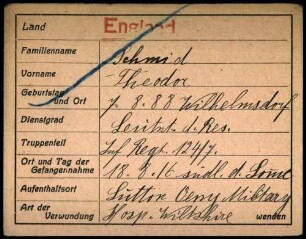 Land England
Familienname Schmid
Vorname Theodor
Geburtstag und Ort 7. 8. 88 Wilhelmsdorf
Dienstgrad Leutnt. d. Res.
Truppenteil Inf. Regt. 124/7.
Ort und Tag der Gefangennahme 18. 9. 16 südl. d. Somme
Aufenthaltsort Sutton Veny Military
Art der Verwundung Hosp. Wiltshire wenden